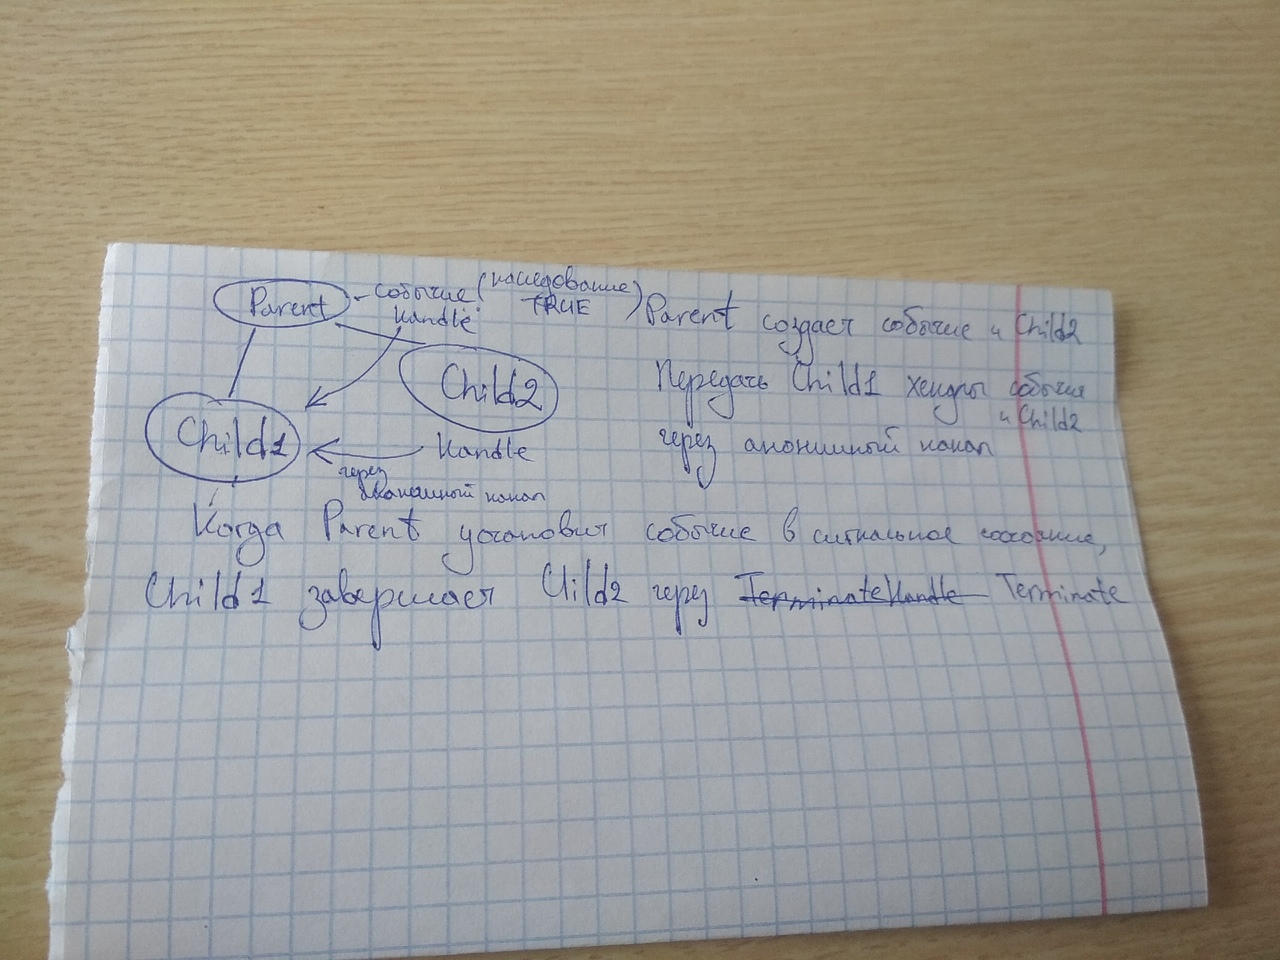 Parent - событие (наследование
Handle TRUE)
Child2
Child1
Handle
через
анонимный канал
Parent создает событие и Child2
Передать Child1 хендлы события
и Child2
через анонимный канал
Когда Parent установит событие в сигнальное состояние,
Child1 завершает Child2 через TerminateHandle Terminate